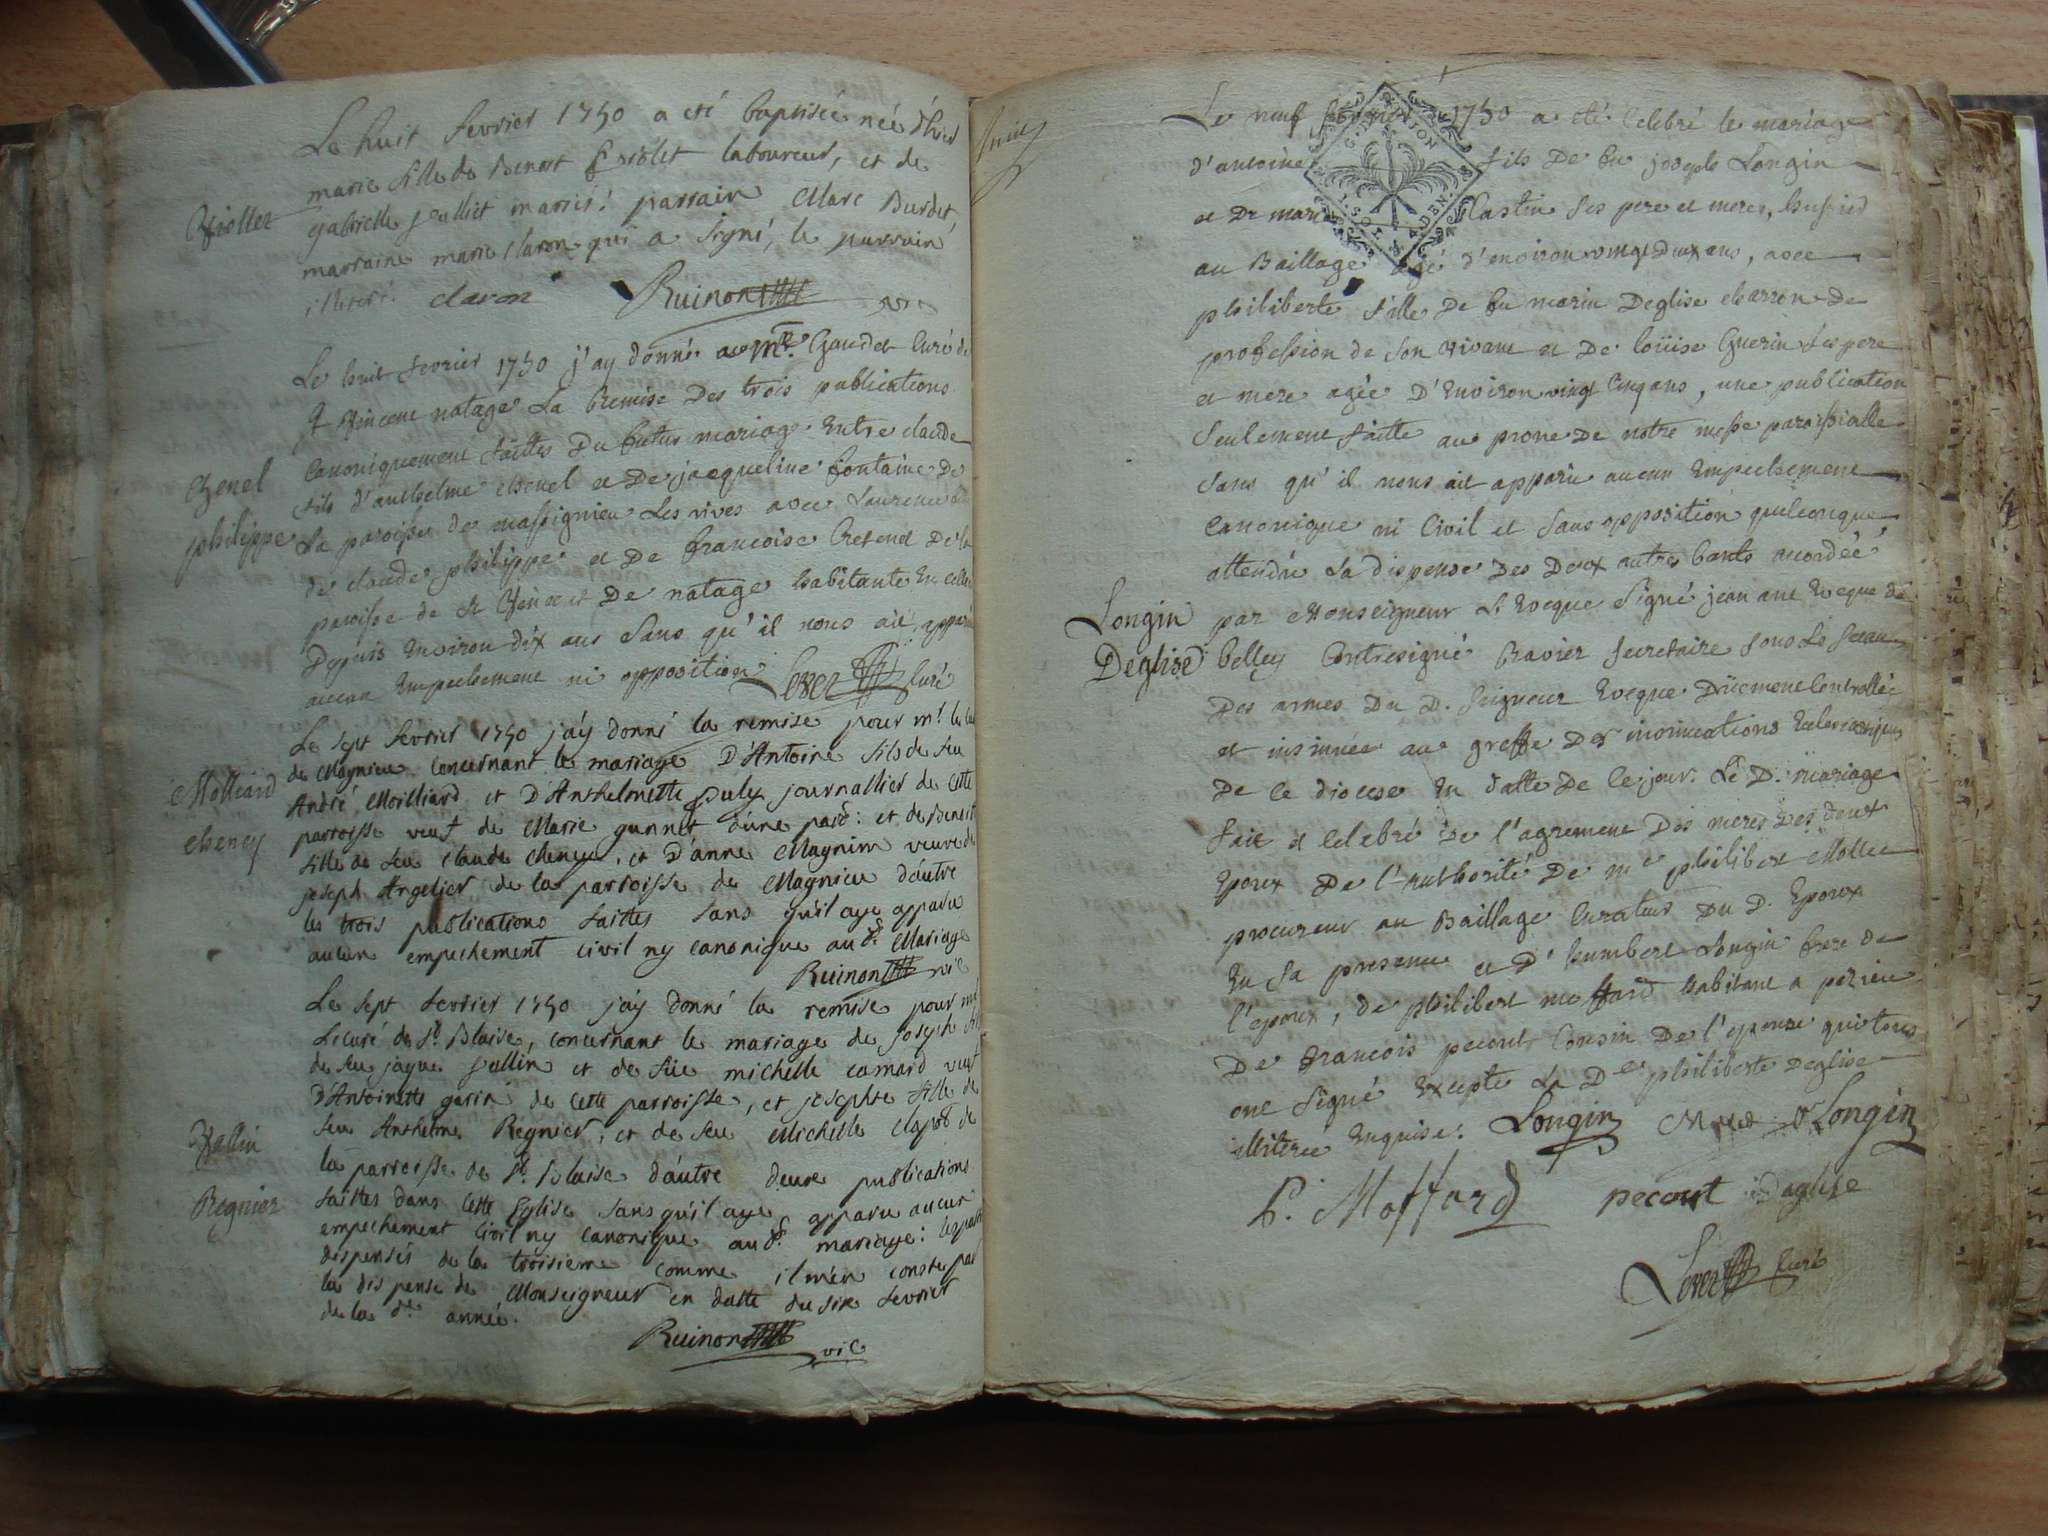 Le huit fevrier 1750 a eté baptisée née d'hier
marie fille de Benoit laboureur, et de
gabrielle mariés: parrain Marc Burdet
marraine marie Claron qui a signé, le parrain
illiteré. claron Ruinon vic
Le huit fevrier 1750 j'ay donné a mr. Gaudet Curé de
St Vincent natage La Remise Des trois publications
Canoniquement faittes Du futur mariage Entre claude
fils d'anthelme chenel et De jacqueline fontaine De
La paroisse de massignieu Les rives avec Laurence
de claude philippe et De francoise Cretenet De la
paroisse de St Vincent De natage habitante En celle
Depuis Environ dix ans sans qu'il nous ait apparu
aucun Empechement ni opposition Curé
Chenel
philippe
Le sept fevrier 1750 j'ay donné la remise pour mr. le Curé
de Magnieu Concernant le mariage D'Antoine fils de feu
André Moilliard et D'Anthelmette journallier de cette
parroisse veuf de Marie gunnet d'une part: et de Benoite
fille de feu Claude Cheney, et D'anne Magnin veuve de
joseph Argelier de la parroisse de Magnieu d'autre
les trois publications faittes sans qu'il aye apparu
aucun empechement civil ny canonique au dt. Mariage
Ruinon vic
Molliard
cheney
Le sept fevrier 1750 j'ay donné la remise pour mr
Le curé de St. Blaise, concernant le mariage de Joseph fils
de feu jaque et de feüe michelle camard veuf
D'Antoinette garin de Cette parroisse, et josephte fille de
feu Anthelme Regnier, et de feu Michelle de
la parroisse de St. Blaise d'autre deux publications
faittes dans Cette Eglise sans qu'il aye apparu aucun
empechement civil ny canonique au dt. mariage:
dispensés de la troisieme comme il m'en conste par
la dispense de Monseigneur en datte du six fevrier
de la de. année.
Ruinon vic
Regnier
Le neuf fevrier 1750 a eté Celebré le mariage
d'antoine fils De feu joseph Longin
et De marie Castin ses pere et meres, huissier
au Baillage agé d'environ vingt Deux ans, avec
philiberte fille De feu marin Deglise charron de
profession de son vivant et De loüise Guerin ses pere
et mere agée D'Environ vingt Cinq ans, une publication
Seulement faitte au prone De notre messe paroissialle
Sans qu'il nous ait apparu aucun Empechement
Canonique ni Civil et sans opposition quelconque,
attendu La dispense Des Deux autres bants accordée
par Monseigneur L'Eveque Signé jean ant Eveque de
Belley Contresigné Cravier Secretaire sous Le Sceau
Des armes Du D. Seigneur Eveque Düement Controllée
et insinuée au greffe Des insinuations Eclesiastiques
De Ce diocese En datte De Ce jour. Le D. mariage
fait et Celebré De l'agrement Des meres Des deux
Epoux De l'Authorité De me philibert Mollet
procureur au Baillage Curateur Du D. Epoux
En Sa presence et D'humbert Longin frere de
l'epoux, de philibert moffard habitant a pezieu
De francois pecout Cousin De l'epouse qui tous
ont Signé Excepté La Dlle philiberte Deglise
illiterée Enquise. Longin Longin
P. Moffard pecout Deglise
Curé
Longin
Deglise